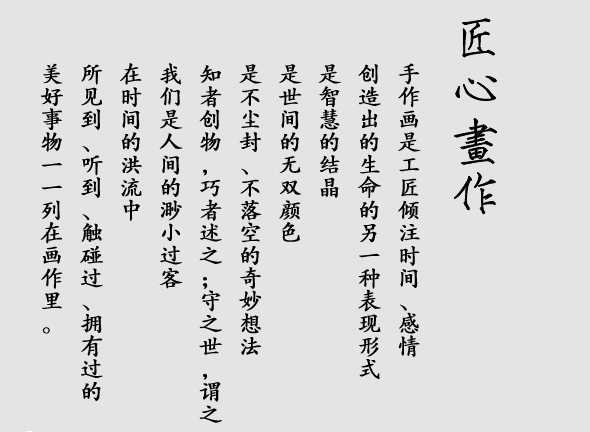 匠心畫作
手作画是工匠倾注时间、感情
创造出的生命的另一种表现形式
是智慧的结晶
是世间的无双颜色
是不尘封、不落空的奇妙想法
知者创物,巧者述之;守之世,谓之
我们是人间的渺小过客
在时间的洪流中
所见到、听到、触碰过、拥有过的
美好事物一一列在画作里。